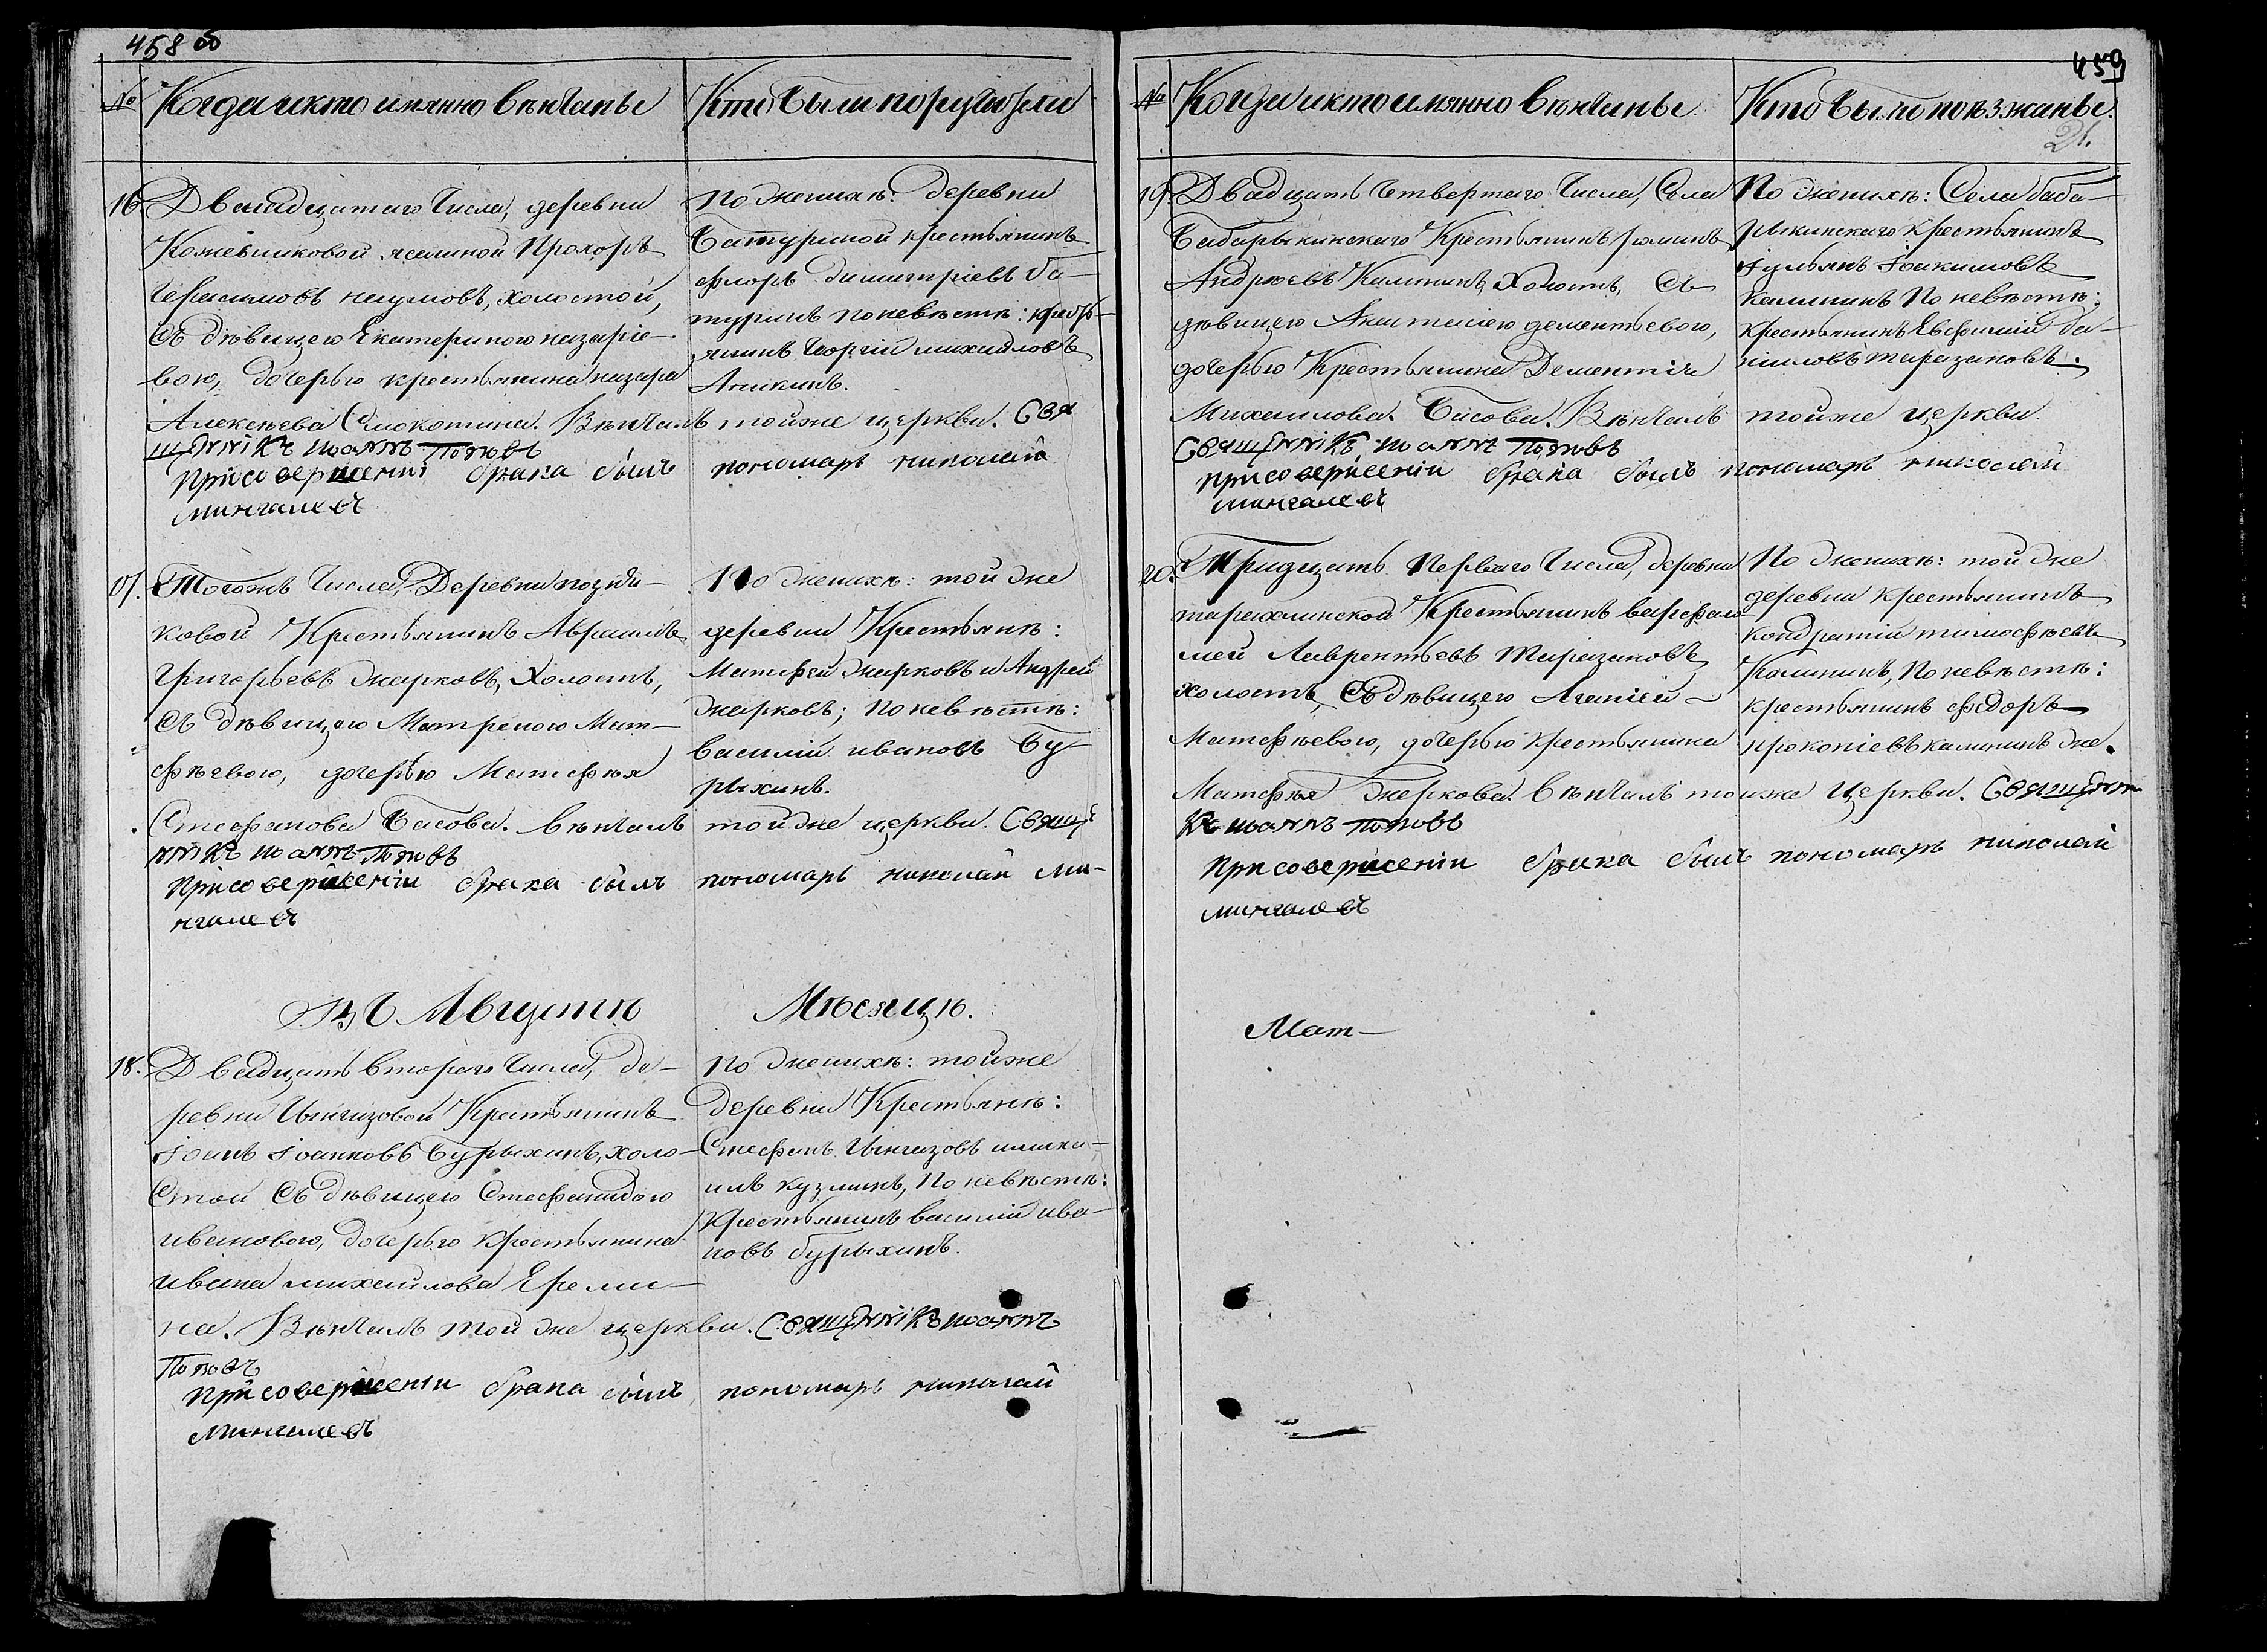 458 об
№ Когда и кто имянно вѣнчаны
Кто были поручители
16 Двадцатаго Числа, деревни
Кожевниковой ясашной Прохоръ
Герасимовъ наумовъ, холостой,
съ дѣвицею Екатериною назаріе-
вою, дочерью крестьянина назара
Алексѣева Вѣнчалъ тойже церкви. Свя
щенникъ Іоаннъ Поповъ
При совершеніи брака былъ пономарь николай
мингалевъ
По женихѣ: деревни
Батуриной крестьянинъ
флоръ димитріевъ ба-
туринъ по невѣстѣ: кресть-
янинъ Георгій михайловъ
Аникинъ.
17. Тогожъ Числа, Деревни
ковой Крестьянинъ Авраамъ
Григорьевъ Жарковъ, Холостъ,
съ дѣвицею Матреною Мат-
фѣевою, дочерью Матфѣя
Стефанова Басова. вѣнчалъ той же церкви. Свяще
нникъ Іоаннъ Поповъ
При совершеніи брака былъ пономарь николай ми-
нгалевъ
По женихѣ: той же
деревни Крестьянѣ:
Матфей Жарковъ и Андрей
Жарковъ; По невѣстѣ:
василій ивановъ Бу-
рыхинъ.
Въ Августѣ Мѣсяцѣ.
18. Двадцать втораго Числа, де-
ревни Чингизовой Крестьянинъ
Іоанъ Іоанновъ Бурыхинъ, холо-
стой съ дѣвицею Стефанидою
ивановою, дочерью крестьянина
ивана михайлова Ереми-
на. Вѣнчалъ той же церкви. Священникъ Іоаннъ
Поповъ
При совершеніи брака былъ пономарь николай
мингалевъ
По женихѣ: тойже
деревни Крестьянѣ:
Стефанъ Чингизовъ и миха-
илъ кузминъ, По невѣстѣ:
крестьянинъ василій ива-
новъ бурыхинъ.
459
№ Когда и кто имянно вѣнчаны
Кто были поѣзжаны.
21.
19. Двадцать Четвертаго Числа, Села
Бабарыкинскаго Крестьянинъ романъ
Андреевъ Калининъ, Холостъ, съ
дѣвицею дементьевою,
дочерью Крестьянина Дементія
Михайлова Басова. Вѣнчалъ тойже церкви.
Священникъ Іоаннъ Поповъ
При совершеніи брака былъ пономарь николай
мингалевъ
По женихѣ: Села баба-
рыкинскаго Крестьянинъ
Іуліанъ Іоакимовъ
калининъ По невѣстѣ:
крестьянинъ Евфимій да-
ниловъ таразановъ.
20. Тридцать Перваго Числа, деревни
Крестьянинъ варфоло-
мей Лаврентьевъ Таразановъ
холостъ, съ дѣвицею Агапіей
Матфѣевою, дочерью крестьянина
Матфѣя Жаркова. вѣнчалъ тойже Церкви. Священни
къ Іоаннъ Поповъ
При совершеніи брака былъ пономарь николай
мингалевъ
По женихѣ: той же
деревни крестьянинъ
кондратій тимофѣевъ
Калининъ, По невѣстѣ:
крестьянинъ федоръ
прокопіевъ калининъ же.
Мат-